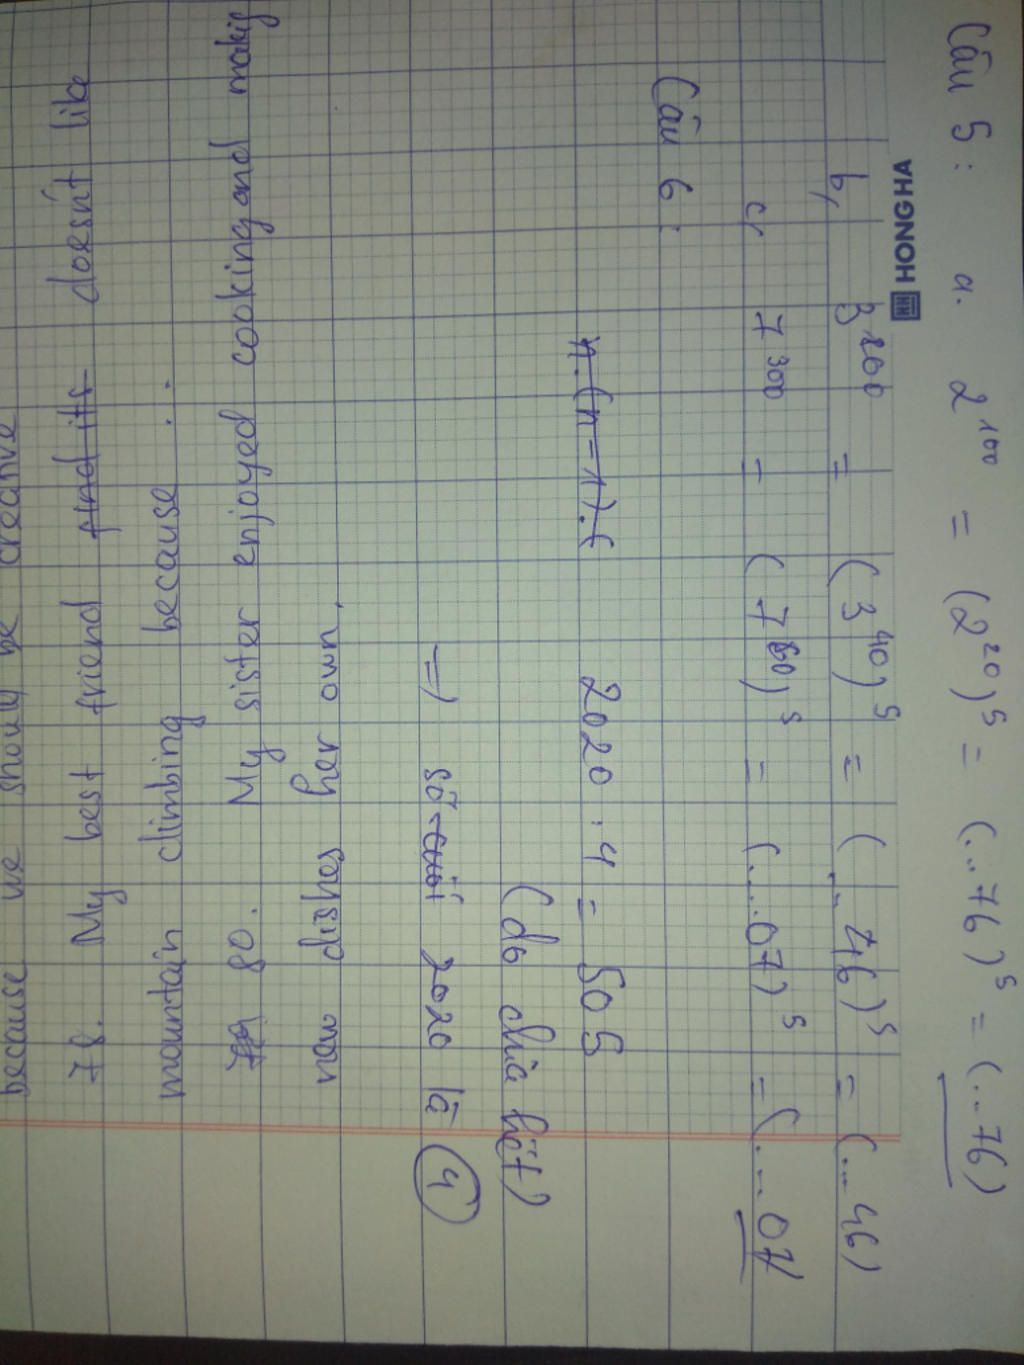 Câu 5: a. 2^100 = (2^20)^5 = (...76)^5 = (...76)
HONG HA
b, 3^200 = (3^40)^5 = (...46)^5 = (...46)
c, 7^300 = (7^60)^5 = (...07)^5 = (...07)
Câu 6:
n.(n-1).( 2020 : 4 = 505
(do chia hết)
=> số cuối 2020 là 4
80. My sister enjoyed cooking and makig
new dishes her own.
78. My best friend find its doesn't like
mountain climbing because ...
because we should be creative